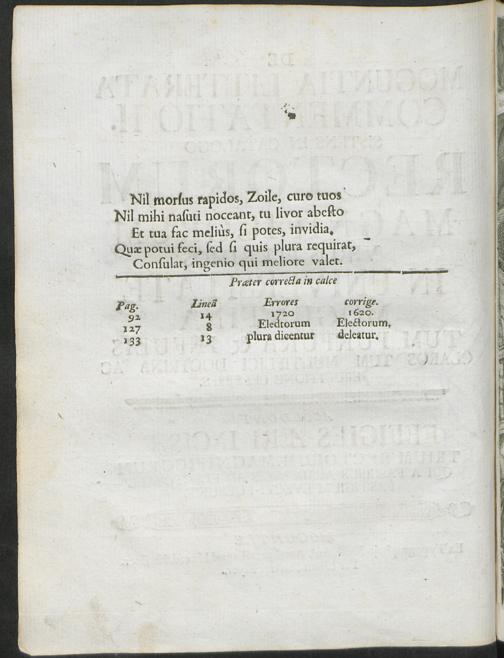 Nil morsus rapidos, Zoile, curo tuos
Nil mihi nasuti noceant, tu livor abesto
Et tua fac meliùs, si potes, invidia,
Quæ potui feci, sed si quis plura requirat,
Consulat, ingenio qui meliore valet.
Præter correcta in calce
Pag. Lineâ Errores corrige.
92 14 1720 1620.
127 8 Eledtorum Electorum,
133 13 plura dicentur deleatur.